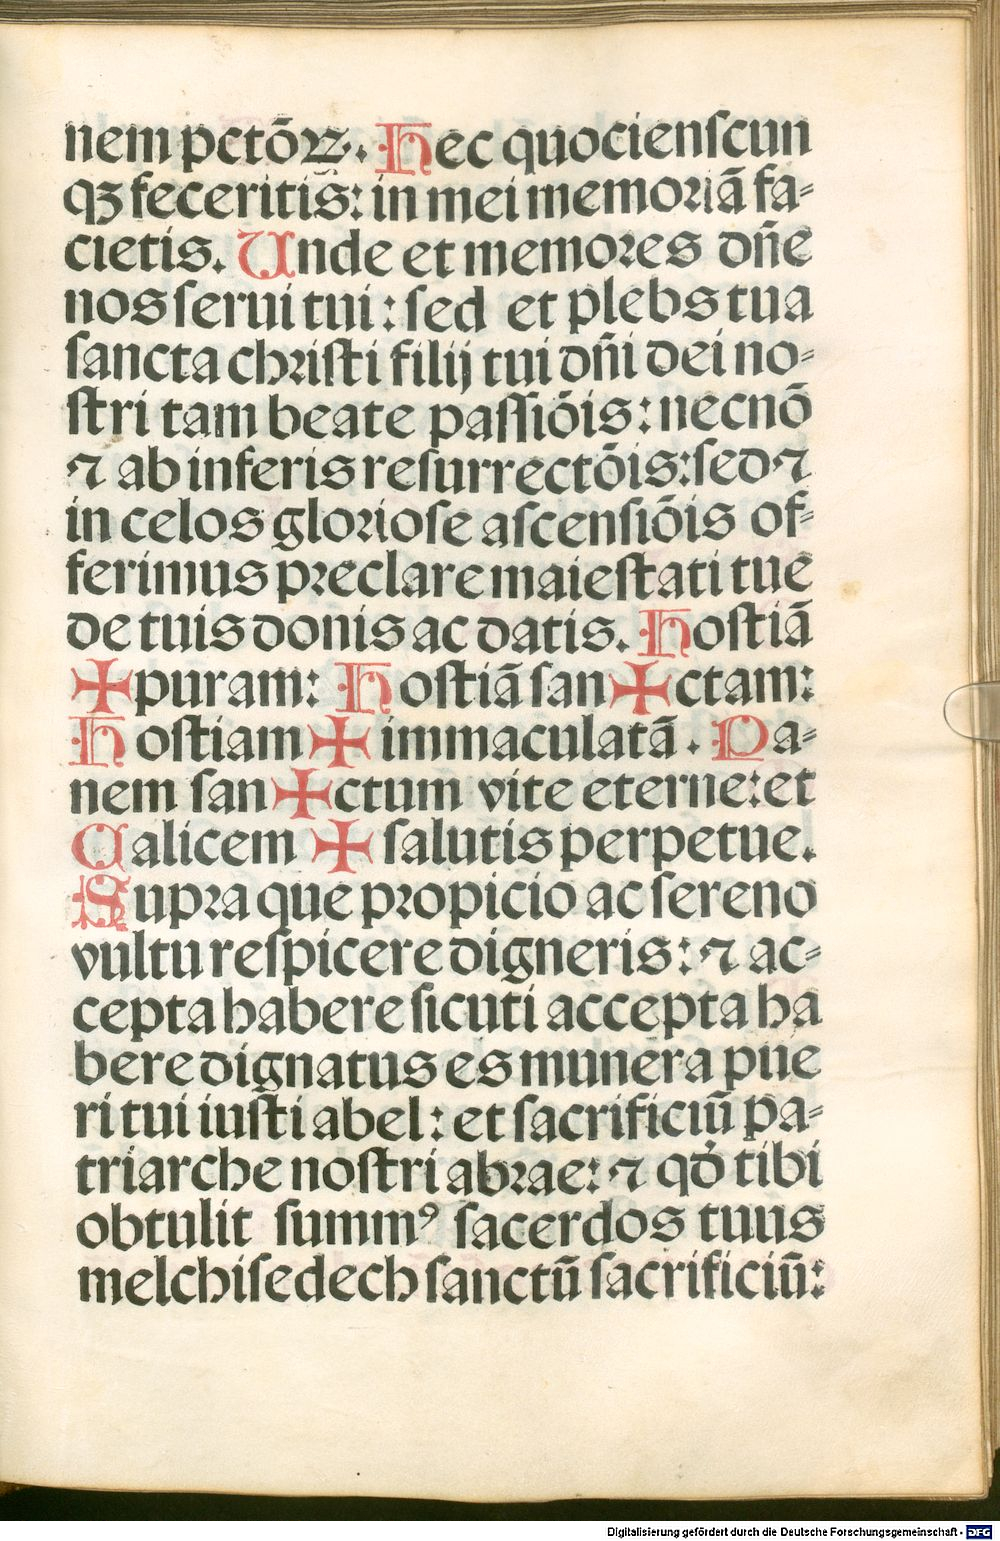 nem pctōꝝ. Hec quociensc̄un
qꝫ feceritis: in mei memoriā fa⸗
cietis. Unde et memores dn̄e
nos serui tui: sed et plebs tua
sancta christi filij tui dn̄i dei no⸗
stri tam beate passiōis: necnō
⁊ ab inferis resurrectōis: sed ⁊
in celos gloriose ascensiōis of⸗
ferimus preclare maiestati tue
de tuis donis ac datis. Hostiā
✠ puram: Hostiā san✠ctam:
Hostiam ✠ immaculatā. Pa⸗
nem san✠ctum vite eterne: et
Calicem ✠ salutis perpetue.
Supra que propicio ac sereno
vultu respicere digneris: ⁊ ac⸗
cepta habere sicuti accepta ha
bere dignatus es munera pue
ri tui iusti abel: et sacrificiū pa⸗
triarche nostri abrae: ⁊ qd̄ tibi
obtulit summꝰ sacerdos tuus
melchisedech sanctū sacrificiū:
Digitalisierung gefördert durch die Deutsche Forschungsgemeinschaft - DFG